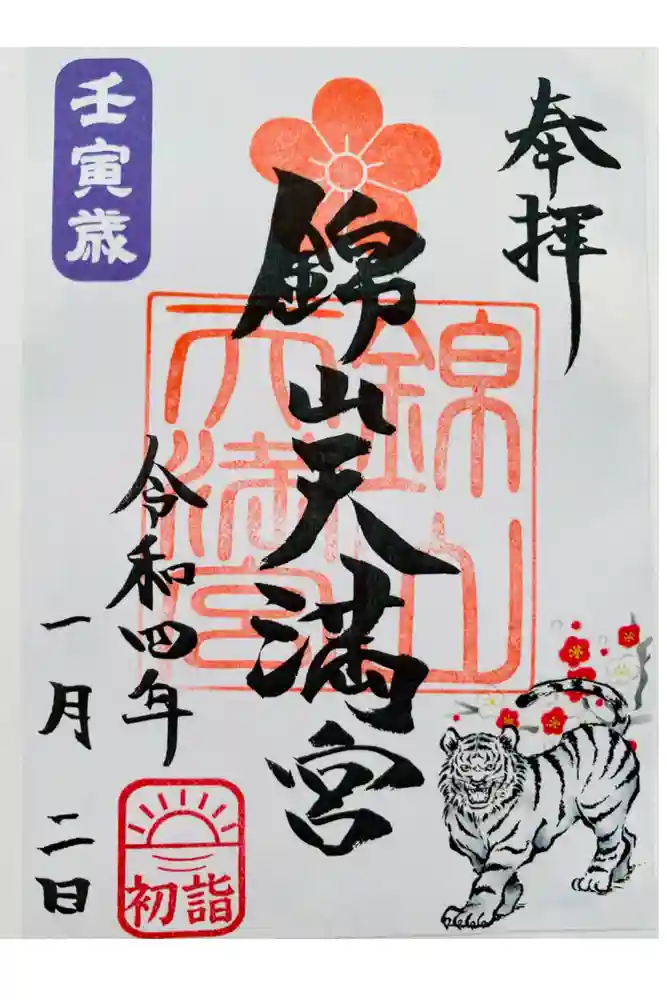 奉拝
錦山天満宮
錦山
天満宮
壬寅歳
令和四年
一月二日
初詣